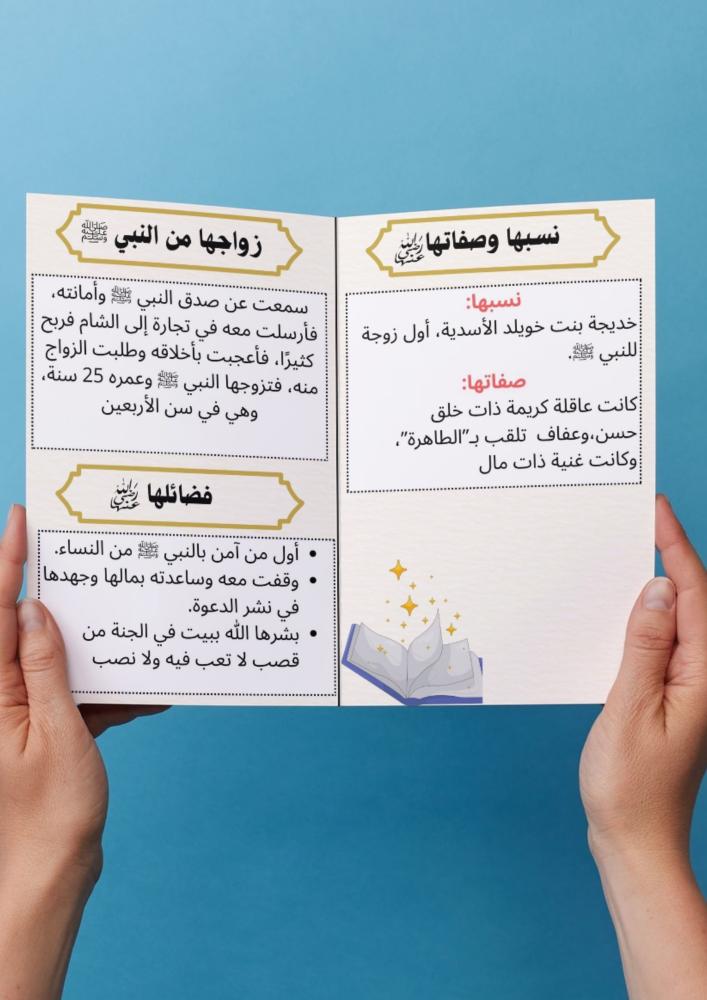 نسبها وصفاتها رضي الله عنها
نسبها:
خديجة بنت خويلد الأسدية، أول زوجة
للنبي ﷺ.
صفاتها:
كانت عاقلة كريمة ذات خلق
حسن،وعفاف تلقب بـ"الطاهرة"،
وكانت غنية ذات مال
زواجها من النبي ﷺ
سمعت عن صدق النبي ﷺ وأمانته،
فأرسلت معه في تجارة إلى الشام فربح
كثيرًا، فأعجبت بأخلاقه وطلبت الزواج
منه، فتزوجها النبي ﷺ وعمره 25 سنة،
وهي في سن الأربعين
فضائلها رضي الله عنها
• أول من آمن بالنبي ﷺ من النساء.
• وقفت معه وساعدته بمالها وجهدها
في نشر الدعوة.
• بشرها الله ببيت في الجنة من
قصب لا تعب فيه ولا نصب